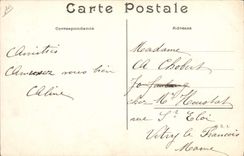 Carte Postale
Correspondance
Adresse
Amitiés
Amusez vous bien
Aline
Madame
A Chobert
chez Mr
rue St Eloi
Vitry le François
Marne